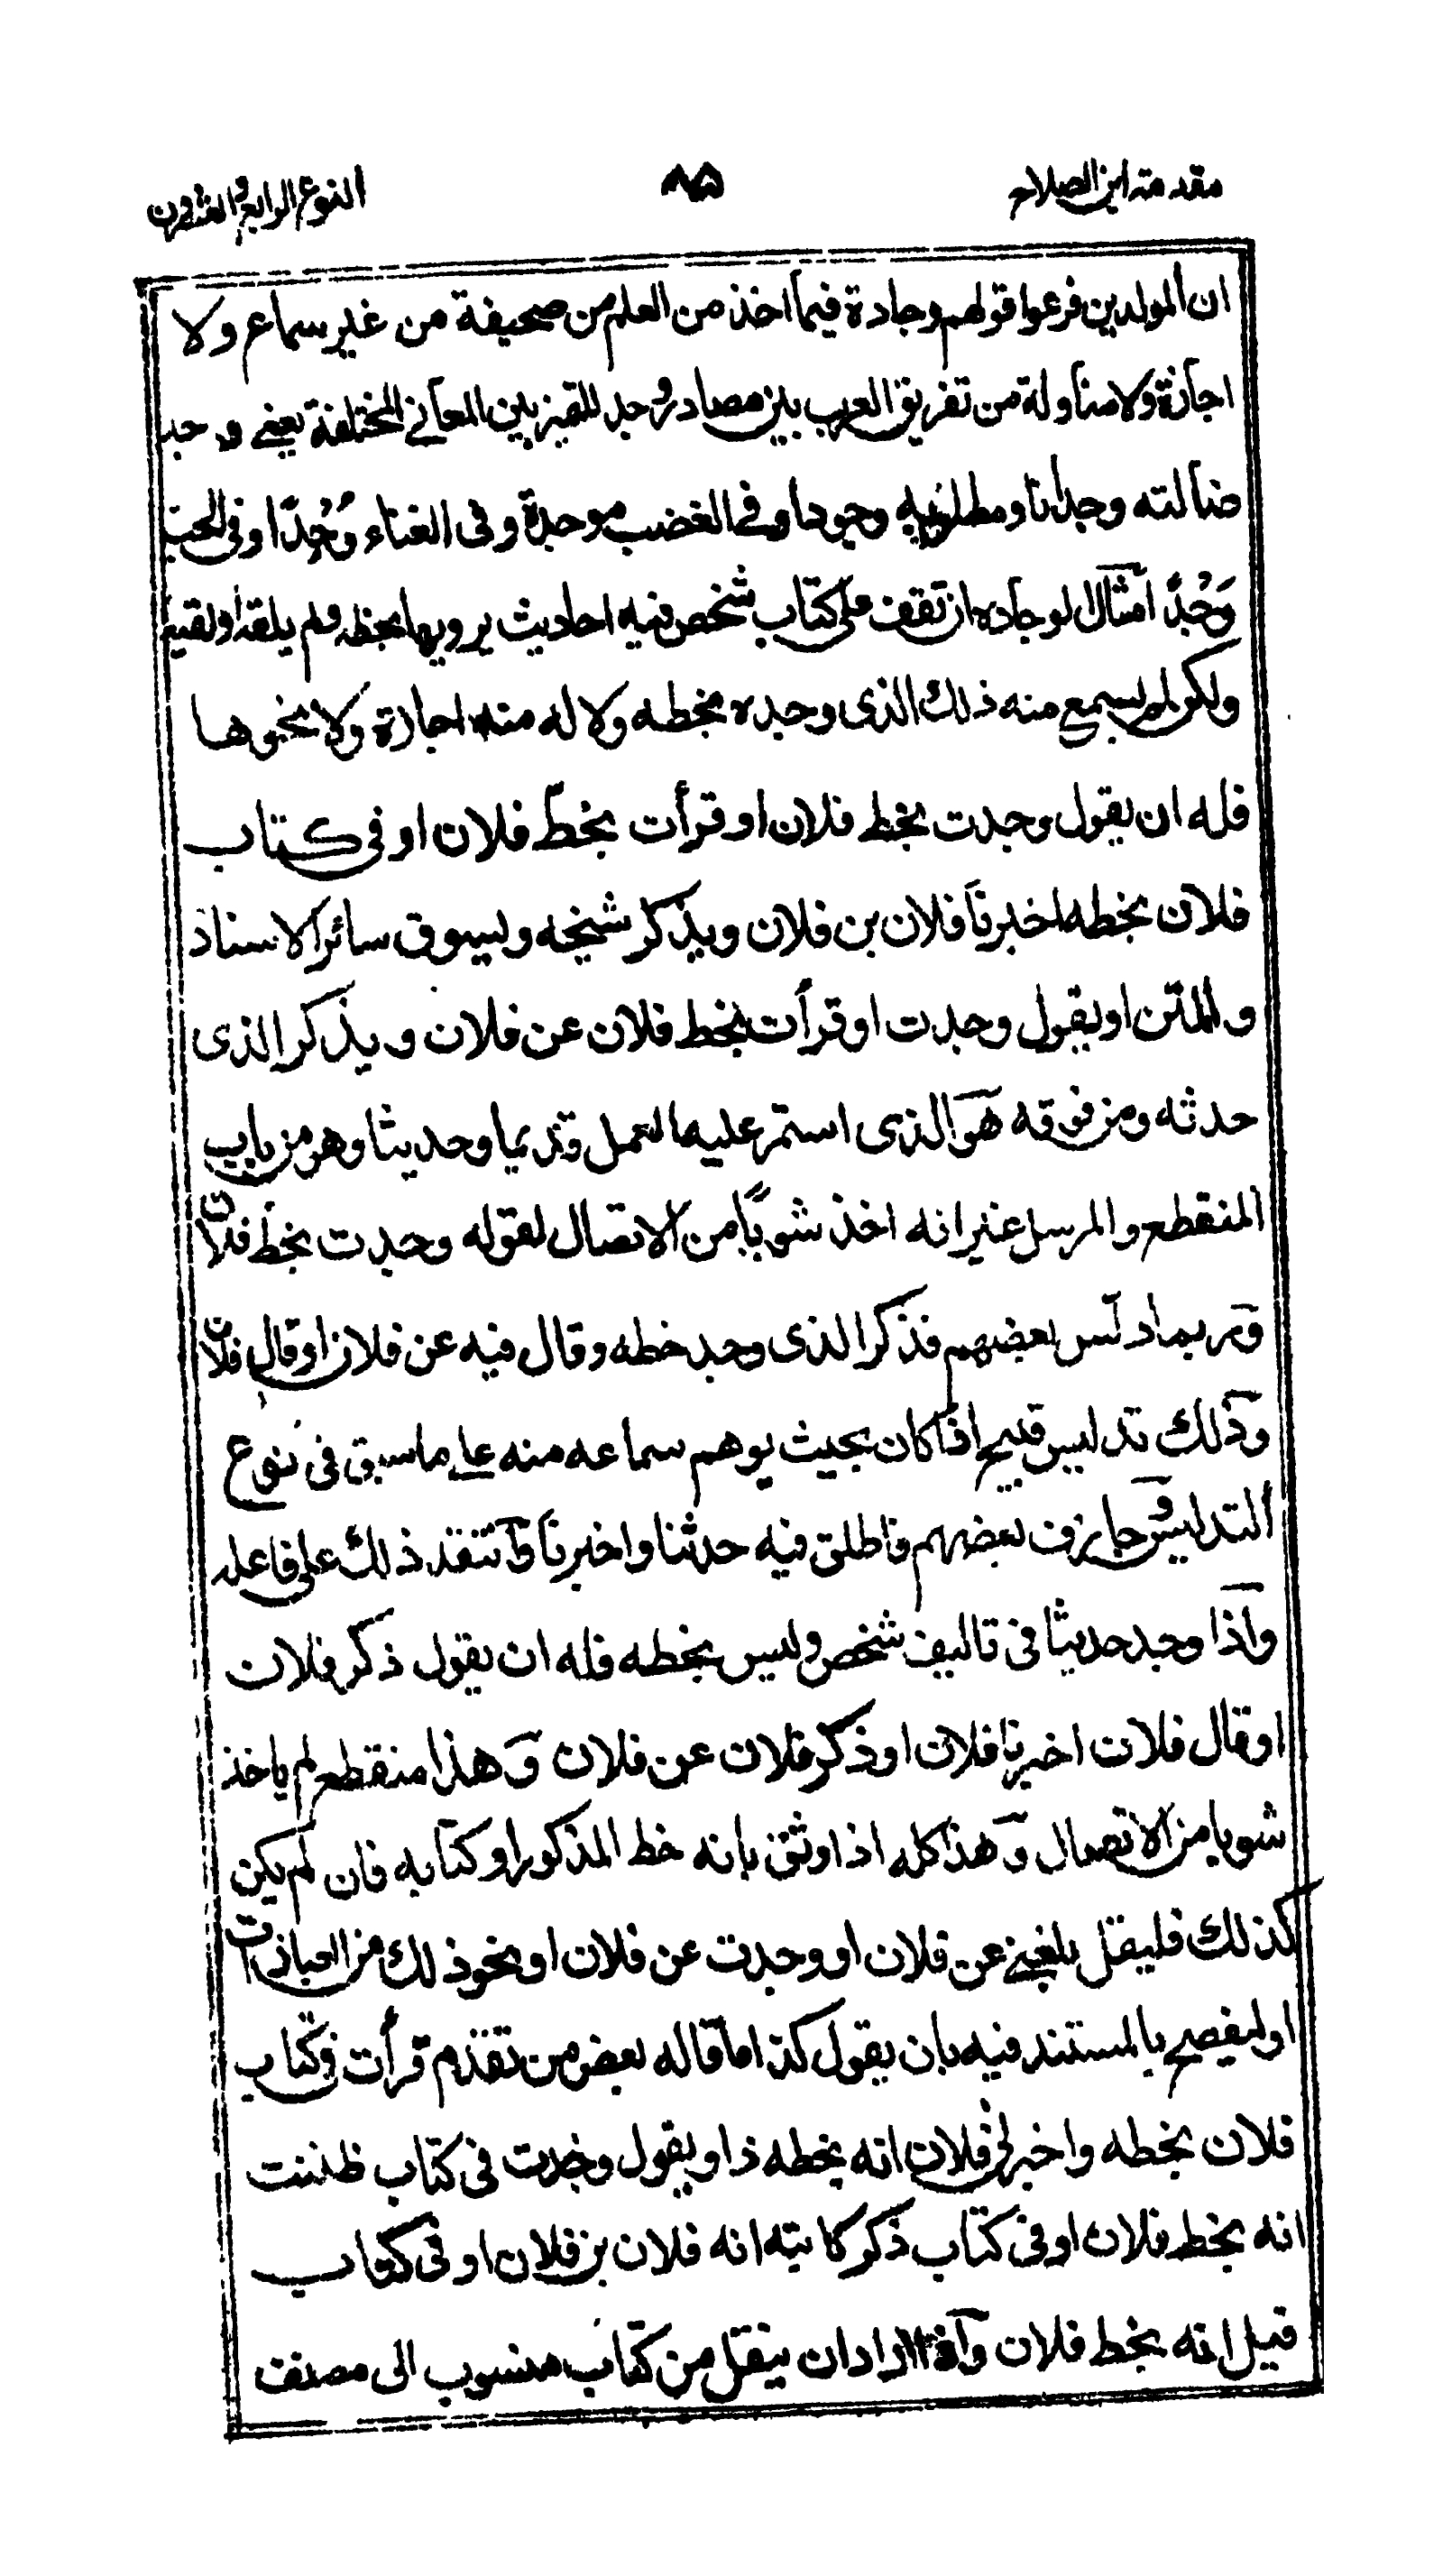 مقدمة ابن الصلاح
٨٥
النوع الرابع والعشرون
ان المولدين فرعوا قولهم وجادة فيما اخذ من العلم من صحيفة من غير سماع ولا
اجازة ولا مناولة من تفريق العرب بين مصادر وجد للتميز بين المعاني المختلفة يعني وجد
ضالته وجدانا ومطلوبه وجودا وفي الغضب موجدة وفى الغناء وُجْدًا وفى الحب
وَجْدًا امثال الوجاده ان تقف على كتاب شخص فيه احاديث يرويها بخطه ولم يلقه او لقيه
ولكن لم يسمع منه ذلك الذى وجده بخطه ولا له منه اجازة ولا نحوها
فله ان يقول وجدت بخط فلان او قرأت بخطّ فلان او فى كتاب
فلان بخطه اخبرنا فلان بن فلان ويذكر شيخه ويسوق سائر الاسناد
والمتن او يقول وجدت او قرأت بخط فلان عن فلان ويذكر الذى
حدثه ومن فوقه هو الذى استمر عليه العمل قديما وحديثا وهو من باب
المنقطع والمرسل غير انه اخذ شوبًا من الاتصال لقوله وجدت بخط فلان
وربما دلس بعضهم فذكر الذى وجد خطه وقال فيه عن فلان او قال فلان
وذلك تدليس قبيح اذا كان بحيث يوهم سماعه منه على ما سبق فى نوع
التدليس وجازف بعضهم فاطلق فيه حدثنا واخبرنا وانتقد ذلك على فاعله
واذا وجد حديثا فى تاليف شخص وليس بخطه فله ان يقول ذكر فلان
او قال فلان اخبرنا فلان او ذكر فلان عن فلان وهذا منقطع لم ياخذ
شوبا من الاتصال وهذا كله اذا وثق بانه خط المذكور او كتابه فان لم يكن
كذلك فليقل بلغني عن فلان او وجدت عن فلان او نحو ذلك من العبارات
او ليفصح بالمستند فيه بان يقول كذا ما قاله بعض من تقدم قرأت فى كتاب
فلان بخطه واخبرنى فلان انه بخطه ذا او يقول وجدت فى كتاب ظننت
انه بخط فلان او فى كتاب ذكر كاتبه انه فلان بن فلان او فى كتاب
قيل انه بخط فلان واذا اراد ان ينقل من كتاب منسوب الى مصنف